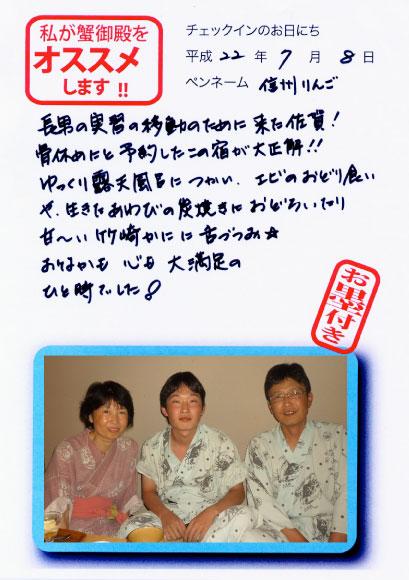 私が蟹御殿を
オススメ
します!!
チェックインのお日にち
平成 22 年 7 月 8 日
ペンネーム 信州りんご
長男の実習の移動のために来た佐賀!
骨休めにと予約したこの宿が大正解!!
ゆっくり露天風呂につかい、エビのおどり食い
や、生きたあわびの炭焼きにおどろいたり
甘～い竹崎かにに舌づつみ☆
おなかも 心も 大満足の
ひと時でした♪
お墨付き